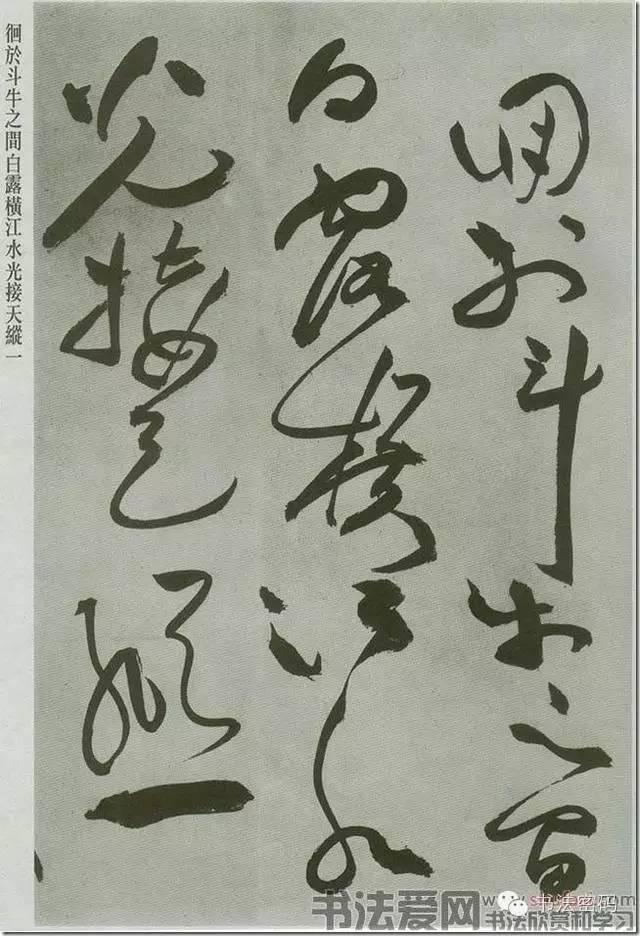 徊於斗牛之間
白露橫江水
光接天縱一
徊於斗牛之間白露橫江水光接天縱一
书法密码
书法爱网
书法欣赏和学习